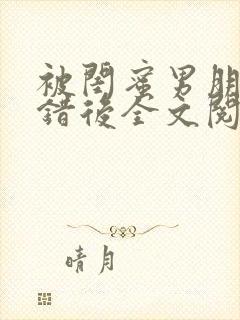 被閨蜜男朋
錯後全文閱
晴月